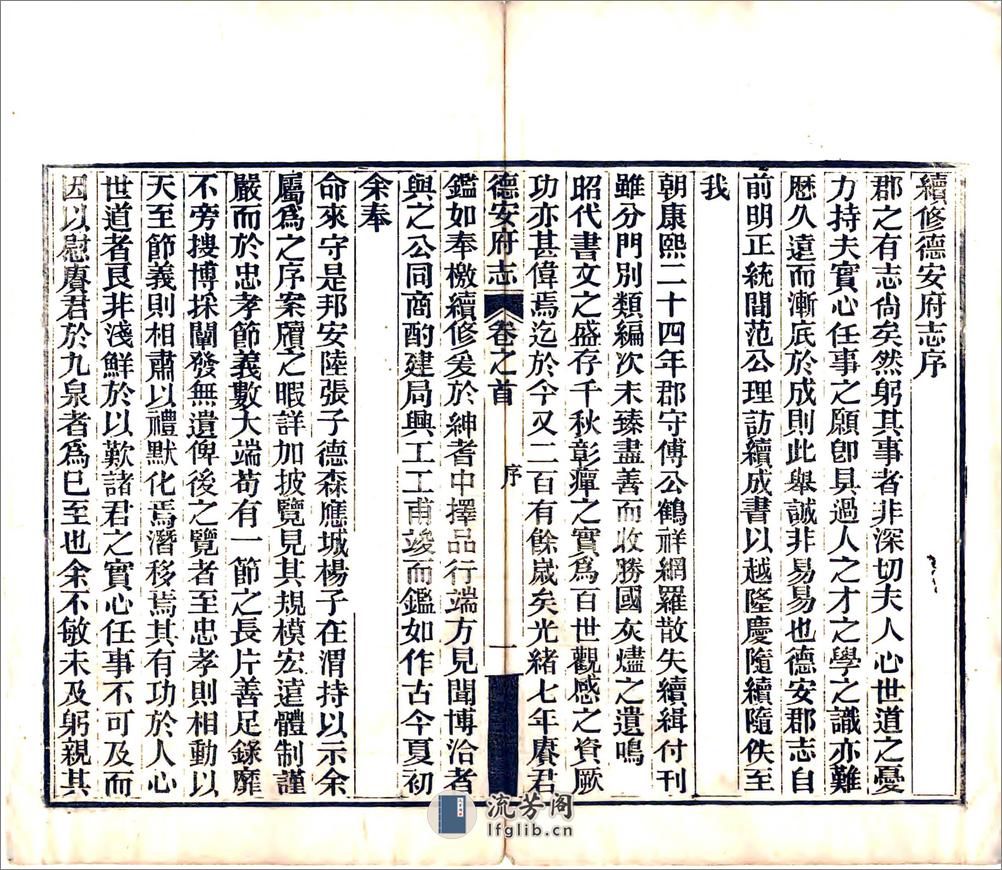 續修德安府志序
郡之有志尚矣然躬其事者非深切夫人心世道之憂
力持夫實心任事之願卽具過人之才之學之識亦難
歷久遠而漸底於成則此舉誠非易易也德安郡志自
前明正統間范公理訪續成書以越隆慶隨續隨佚至
我
朝康熙二十四年郡守傅公鶴祥網羅散失續緝付刊
雖分門別類編次未臻盡善而收勝國灰燼之遺鳴
昭代書文之盛存千秋彰癉之實爲百世觀感之資厥
功亦甚偉焉迄於今又二百有餘歲矣光緒七年賡君
德安府志 卷之首 序 一
鑑如奉檄續修爰於紳耆中擇品行端方見聞博洽者
與之公同商酌建局興工工甫竣而鑑如作古今夏初
余奉
命來守是邦安陸張子德森應城楊子在渭持以示余
屬爲之序案牘之暇詳加披覽見其規模宏遠體制謹
嚴而於忠孝節義數大端苟有一節之長片善足錄靡
不旁搜博採闡發無遺俾後之覽者至忠孝則相動以
天至節義則相肅以禮默化焉潛移焉其有功於人心
世道者艮非淺鮮於以歎諸君之實心任事不可及而
因以慰賡君於九泉者爲已至也余不敏未及躬親其
流芳阁
lfglib.cn